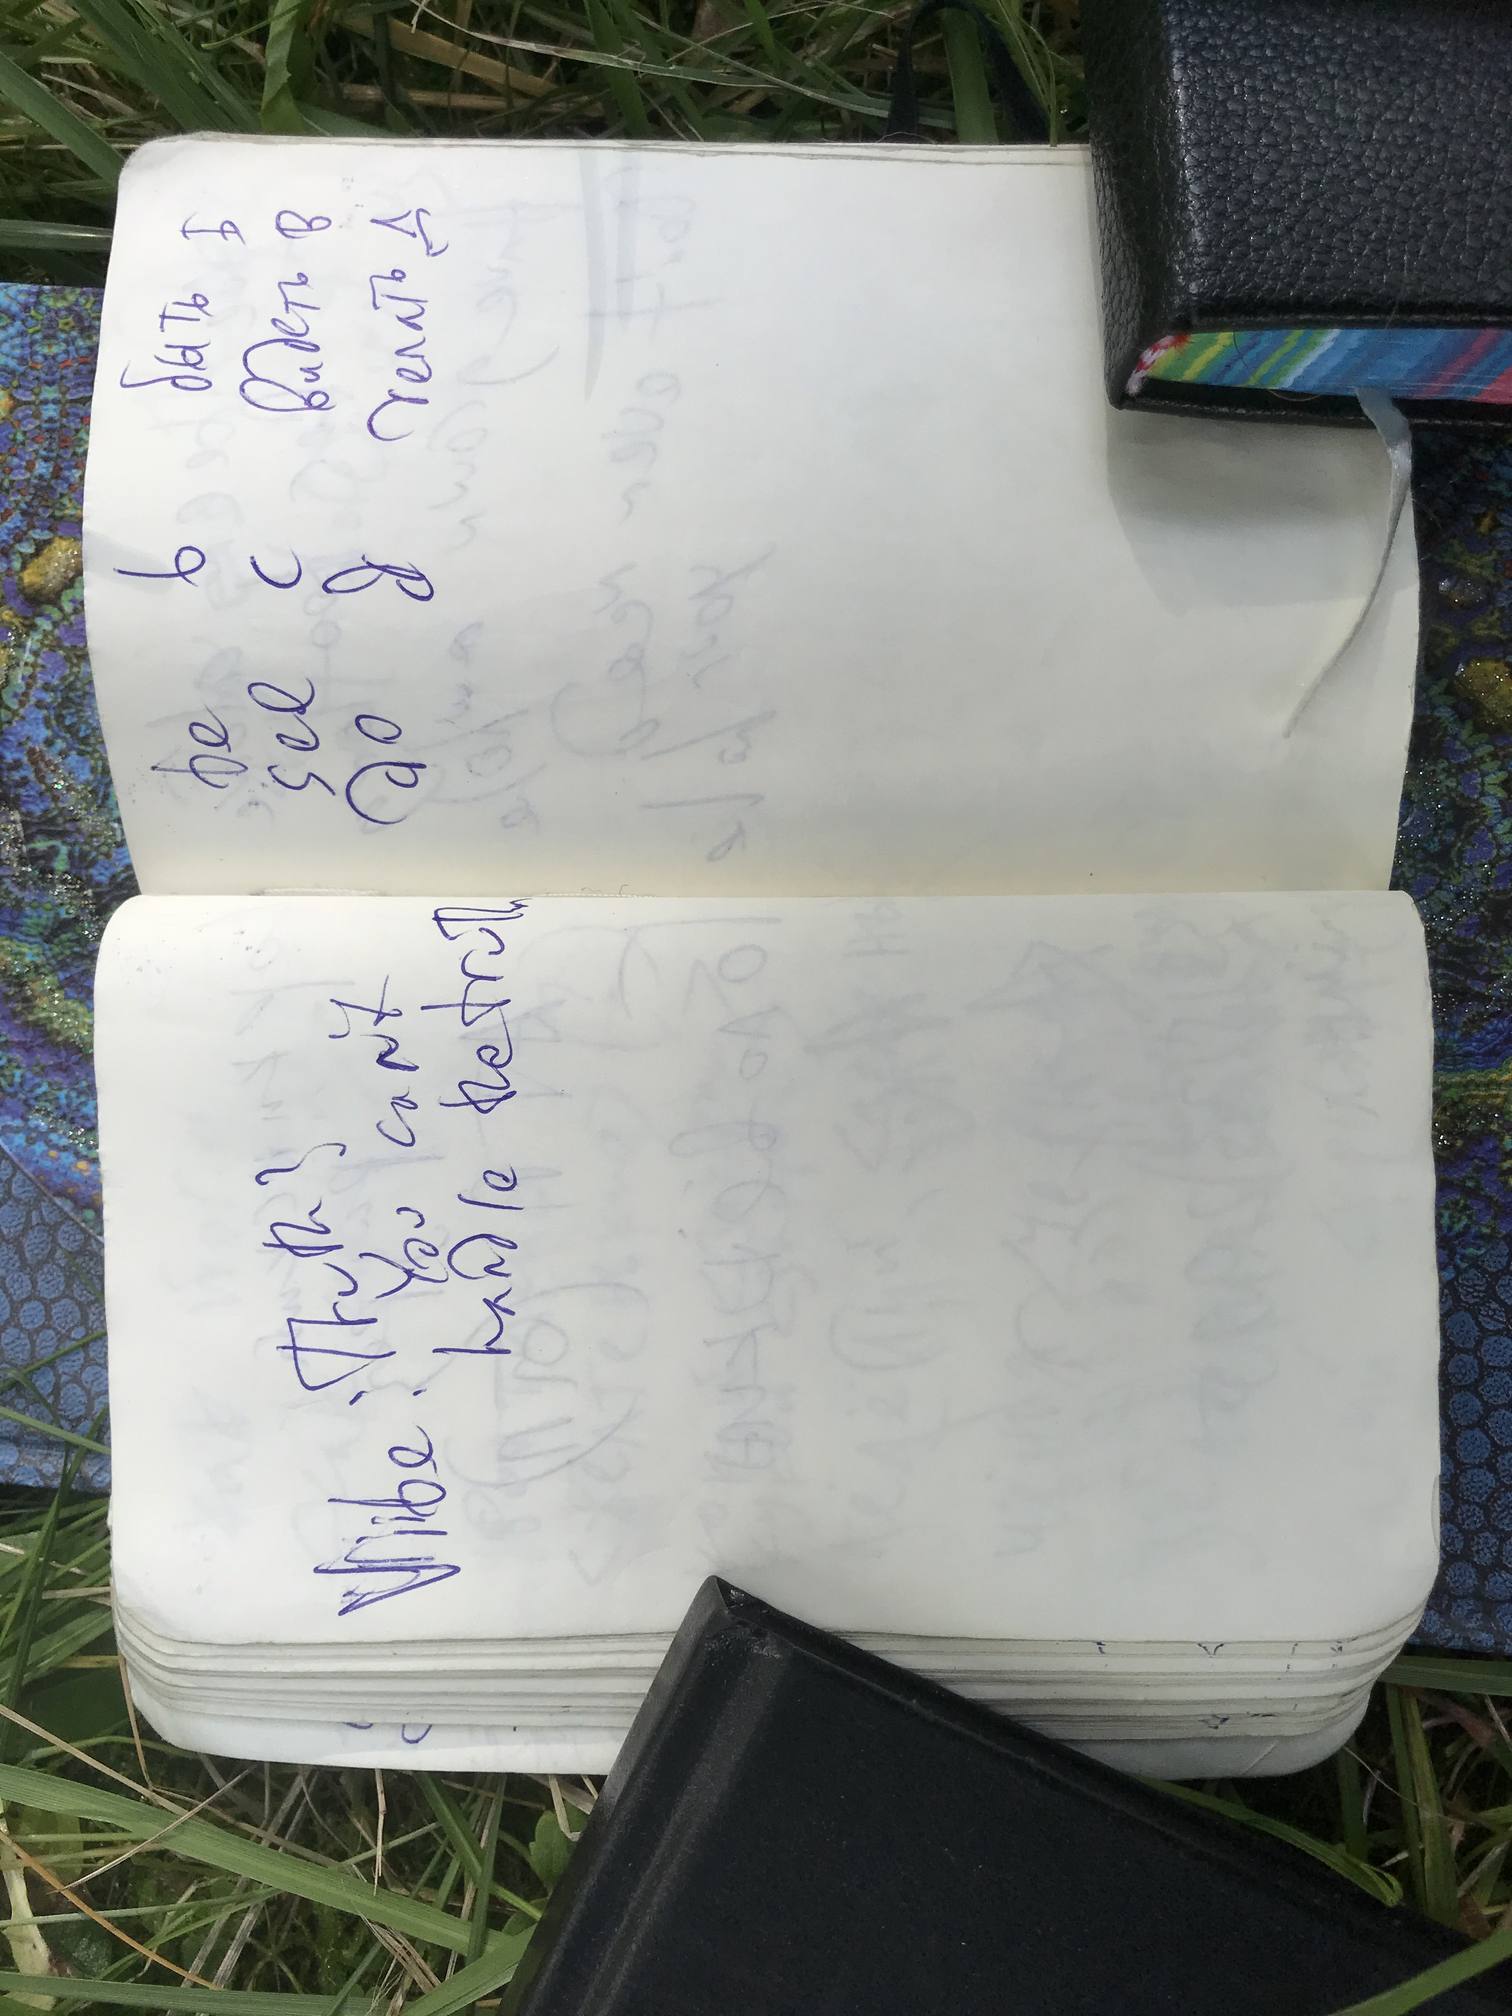 Vibe : Truth?
You can't
handle the truth
be b быть Б
see c видеть В
do d делать Д